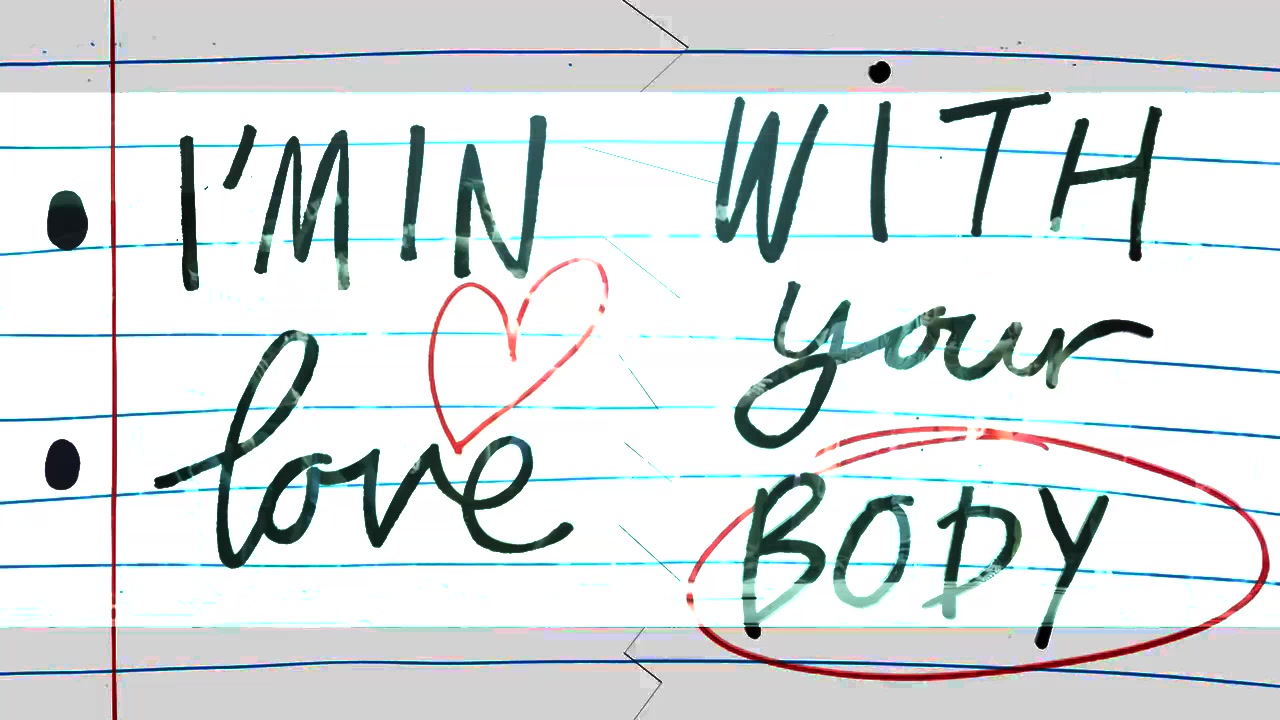 I'M IN
love
WITH
your
BODY